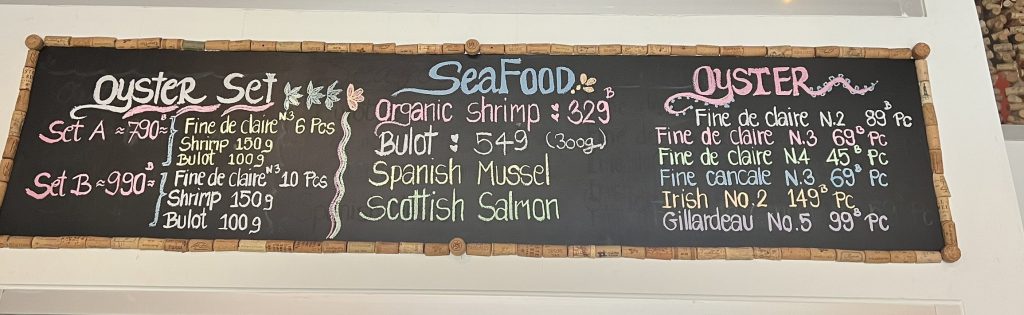 Oyster Set
Set A ≈ 790B ≈ Fine de claire N3 6 Pcs
Shrimp 150g
Bulot 100g
Set B ≈ 990B ≈ Fine de claire N3 10 Pcs
Shrimp 150g
Bulot 100g
SeaFOOD
Organic Shrimp 329B
Bulot 549 (300g)
Spanish Mussel
Scottish Salmon
OYSTER
Fine de claire N.2 89B Pc
Fine de claire N.3 69B Pc
Fine de claire N.4 45B Pc
Fine cancale N.3 69B Pc
Irish No.2 149B Pc
Gillardeau No.5 99B Pc